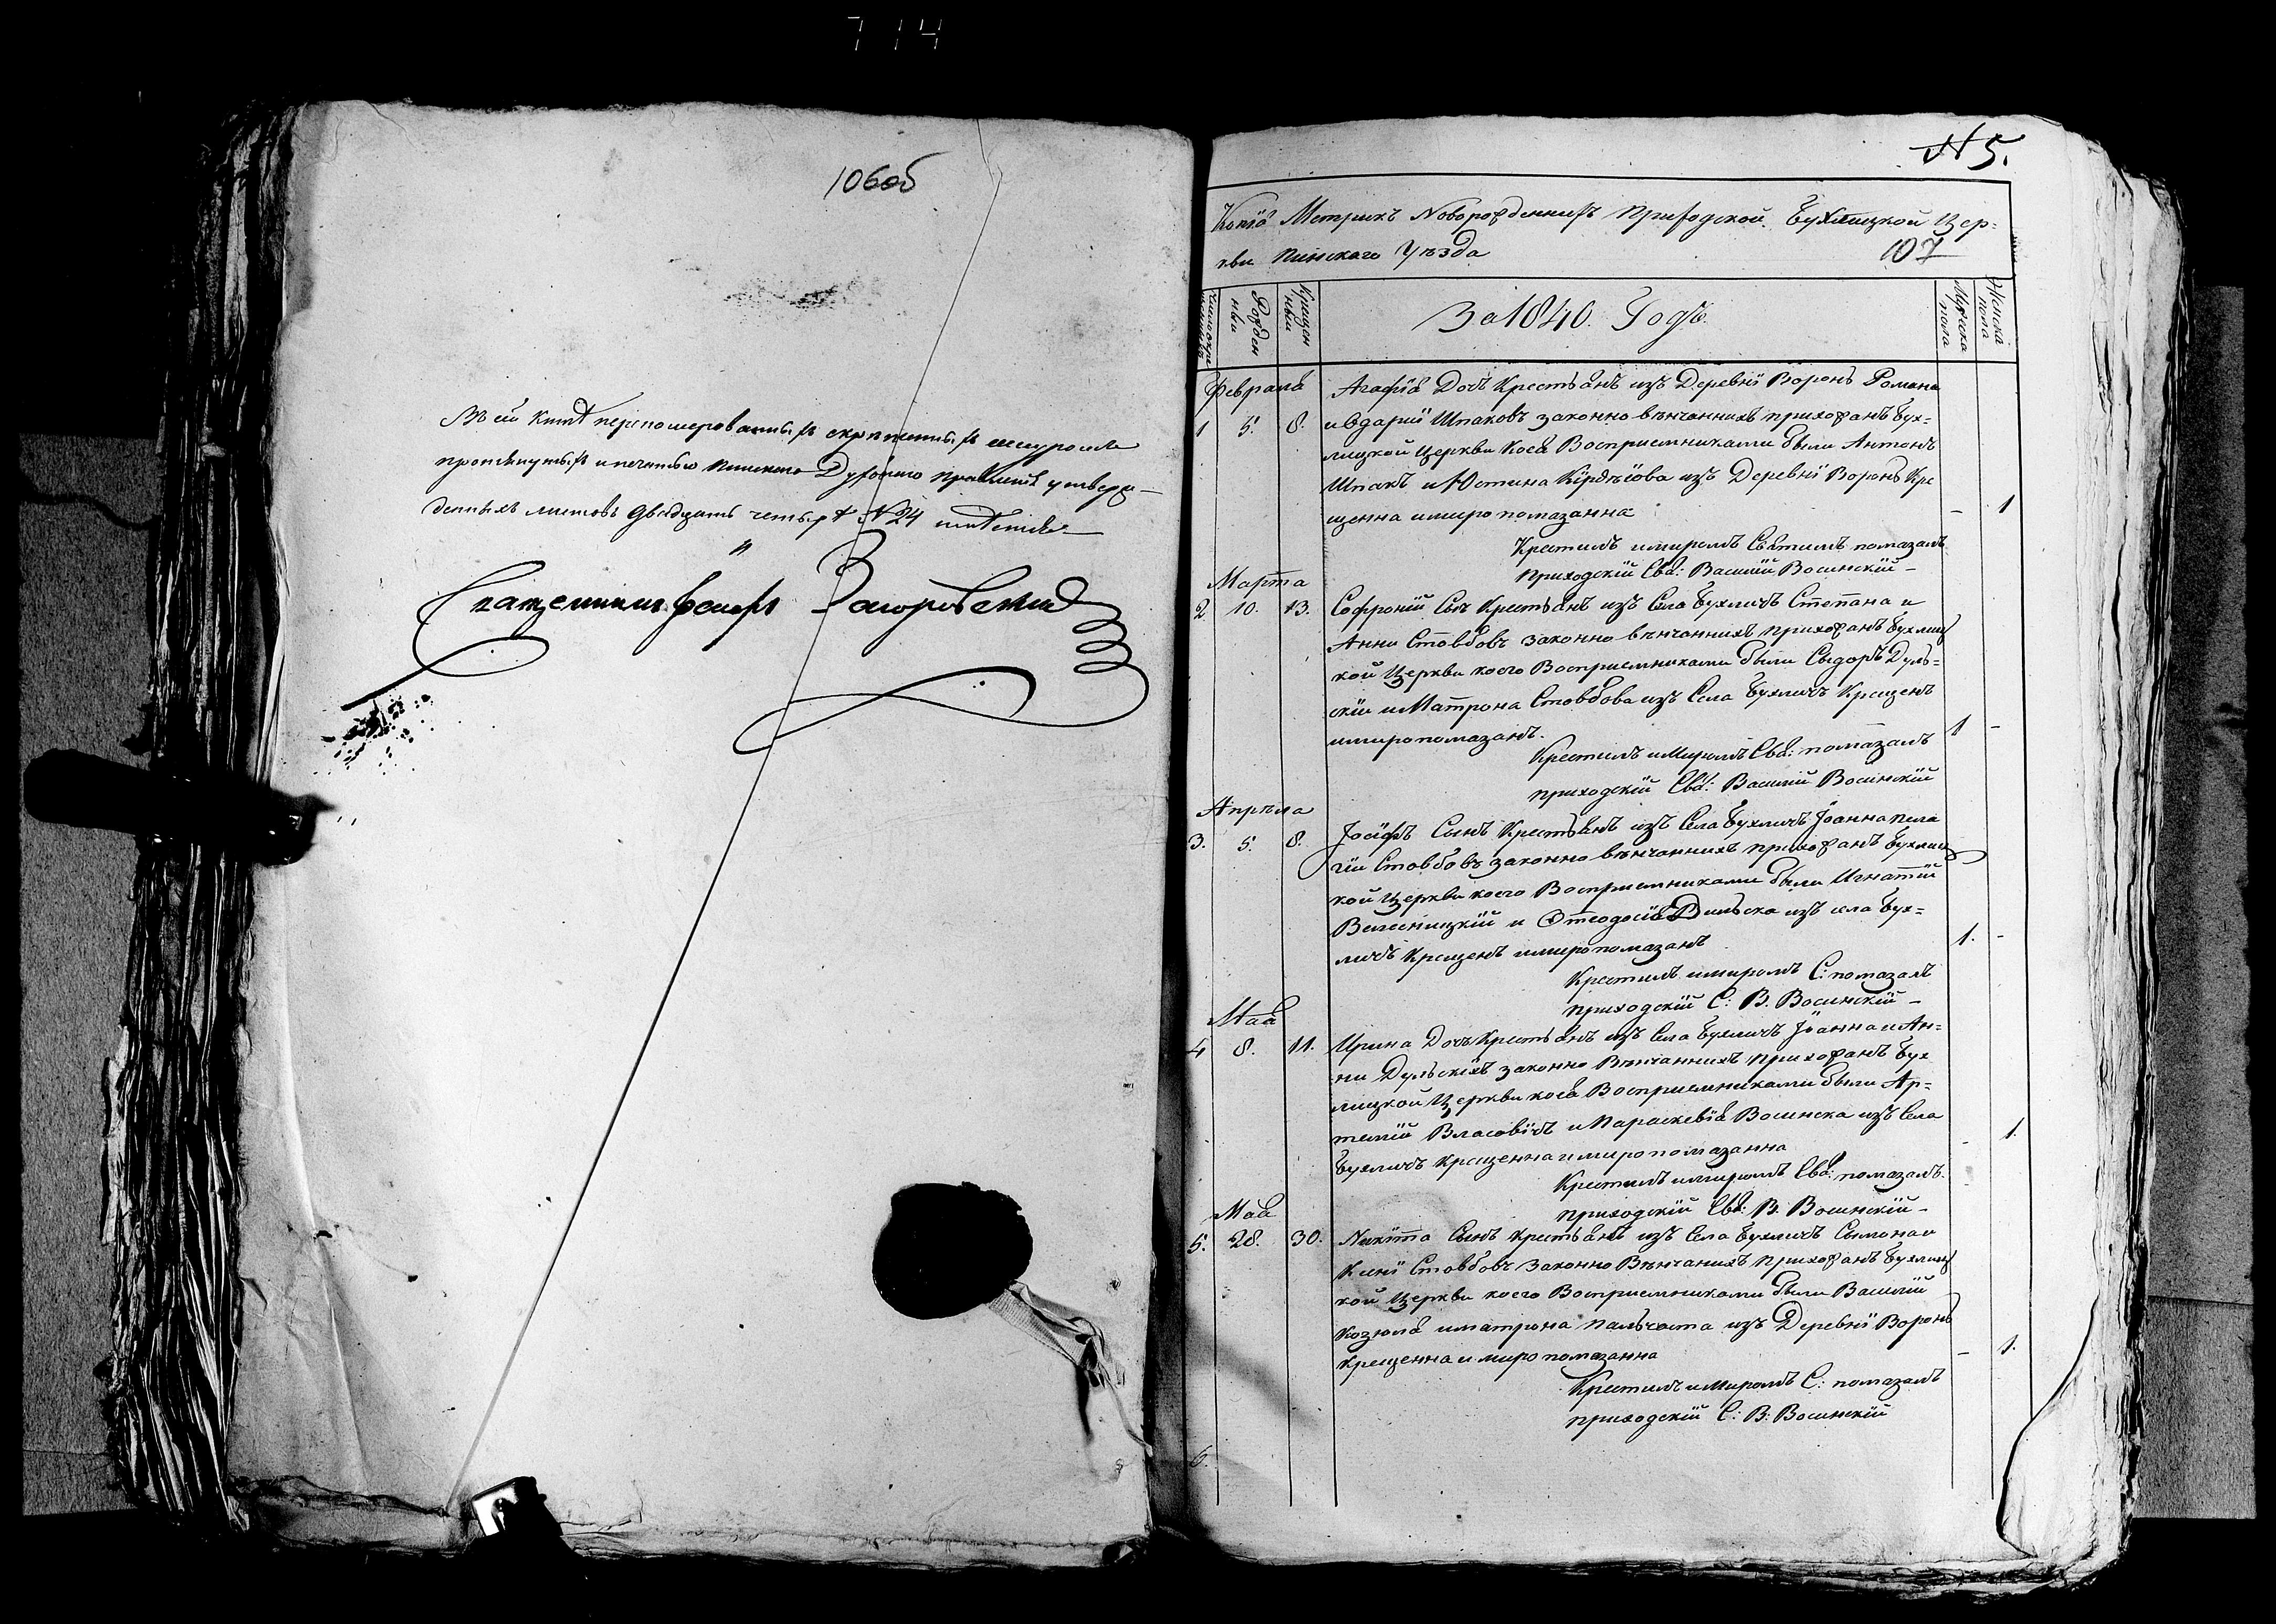 714
106об
Въ сей книгѣ перенумерованныхъ скрѣпленныхъ шнуромъ
протянутыхъ и печатью Пинскаго Духовнаго Правленія утверж-
денныхъ листовъ двадцать четыре №24 
Священникъ Загоровскій
№ 5.
Копія Метрикъ Новорожденныхъ Приходской Бухлицкой Цер=
кви Пинскаго Уѣзда
107
Рожден
ныи
Крещен
ныи
За 1840. Годъ.
Мужеска
пола
Женска
пола
Февраля
1 5. 8.
Агафія Дочь Крестьянъ изъ Деревни Воронь Романа
и Одаріи Шпаковъ законно вѣнчанныхъ прихожанъ Бух=
лицкой Церкви Коея Восприемниками были Антонъ
Шпакъ и Юстина из Деревни Воронь Кре
щенна и миропомазанна - 1
Крестилъ и миромъ Святымъ помазалъ
приходскій Свя: Василій Восинскій -
Марта
2 10. 13.
Софроній Сынъ Крестьянъ изъ Села Бухличъ Степана и
Анни Стовбовъ законно вѣнчанныхъ прихожанъ Бухлиц
кой Церкви коего Восприемниками были Сыдоръ Дуль=
скіи и Матрона Стовбова изъ Села Бухличъ Крещенъ
и миропомазанъ. 1 -
Крестилъ и Миромъ Свя: помазалъ
приходскій Свя: Василій Восинскій
Апрѣля
3. 5. 8.
Іосифъ Сынъ Крестьянъ изъ Села Бухличъ Іоанна Пела
гіи Стовбовъ законно вѣнчанныхъ прихожанъ Бухлиц
кой Церкви коего Восприемниками были Игнатій
Велесницкій и Ѳтеодосія Дильска изъ села Бух=
личъ Крещенъ и миропомазанъ 1. -
Крестилъ и миромъ С: помазалъ
приходскій С: В. Восинскій -
Мая
4 8. 11.
Ирина Дочь Крестьянъ изъ Села Бухличъ Іоанна и Ан=
ни Дульскихъ законно Вѣнчанныхъ прихожанъ Бух
лицкой Церкви коея Восприемниками были Ар=
темій Власовичъ и Параскевія Восинска изъ Села
Бухличъ Крещенна и миропомазанна - 1.
Крестилъ и миромъ Свя: помазалъ.
приходскій Свя: В. Восинскій -
Мая
5. 28. 30.
Никитта Сынъ Крестьянъ изъ Села Бухличъ Сымона и
Ксени Стовбовъ законно Вѣнчаныхъ прихожанъ Бухлиц
кой Церкви коего Восприемниками были Василій
Козюля и матрона Пальчаста изъ Деревни Воронь
Крещенна и миропомазанна - 1.
Крестилъ и Миромъ С: помазалъ
приходскій С: В: Восинскій
6.